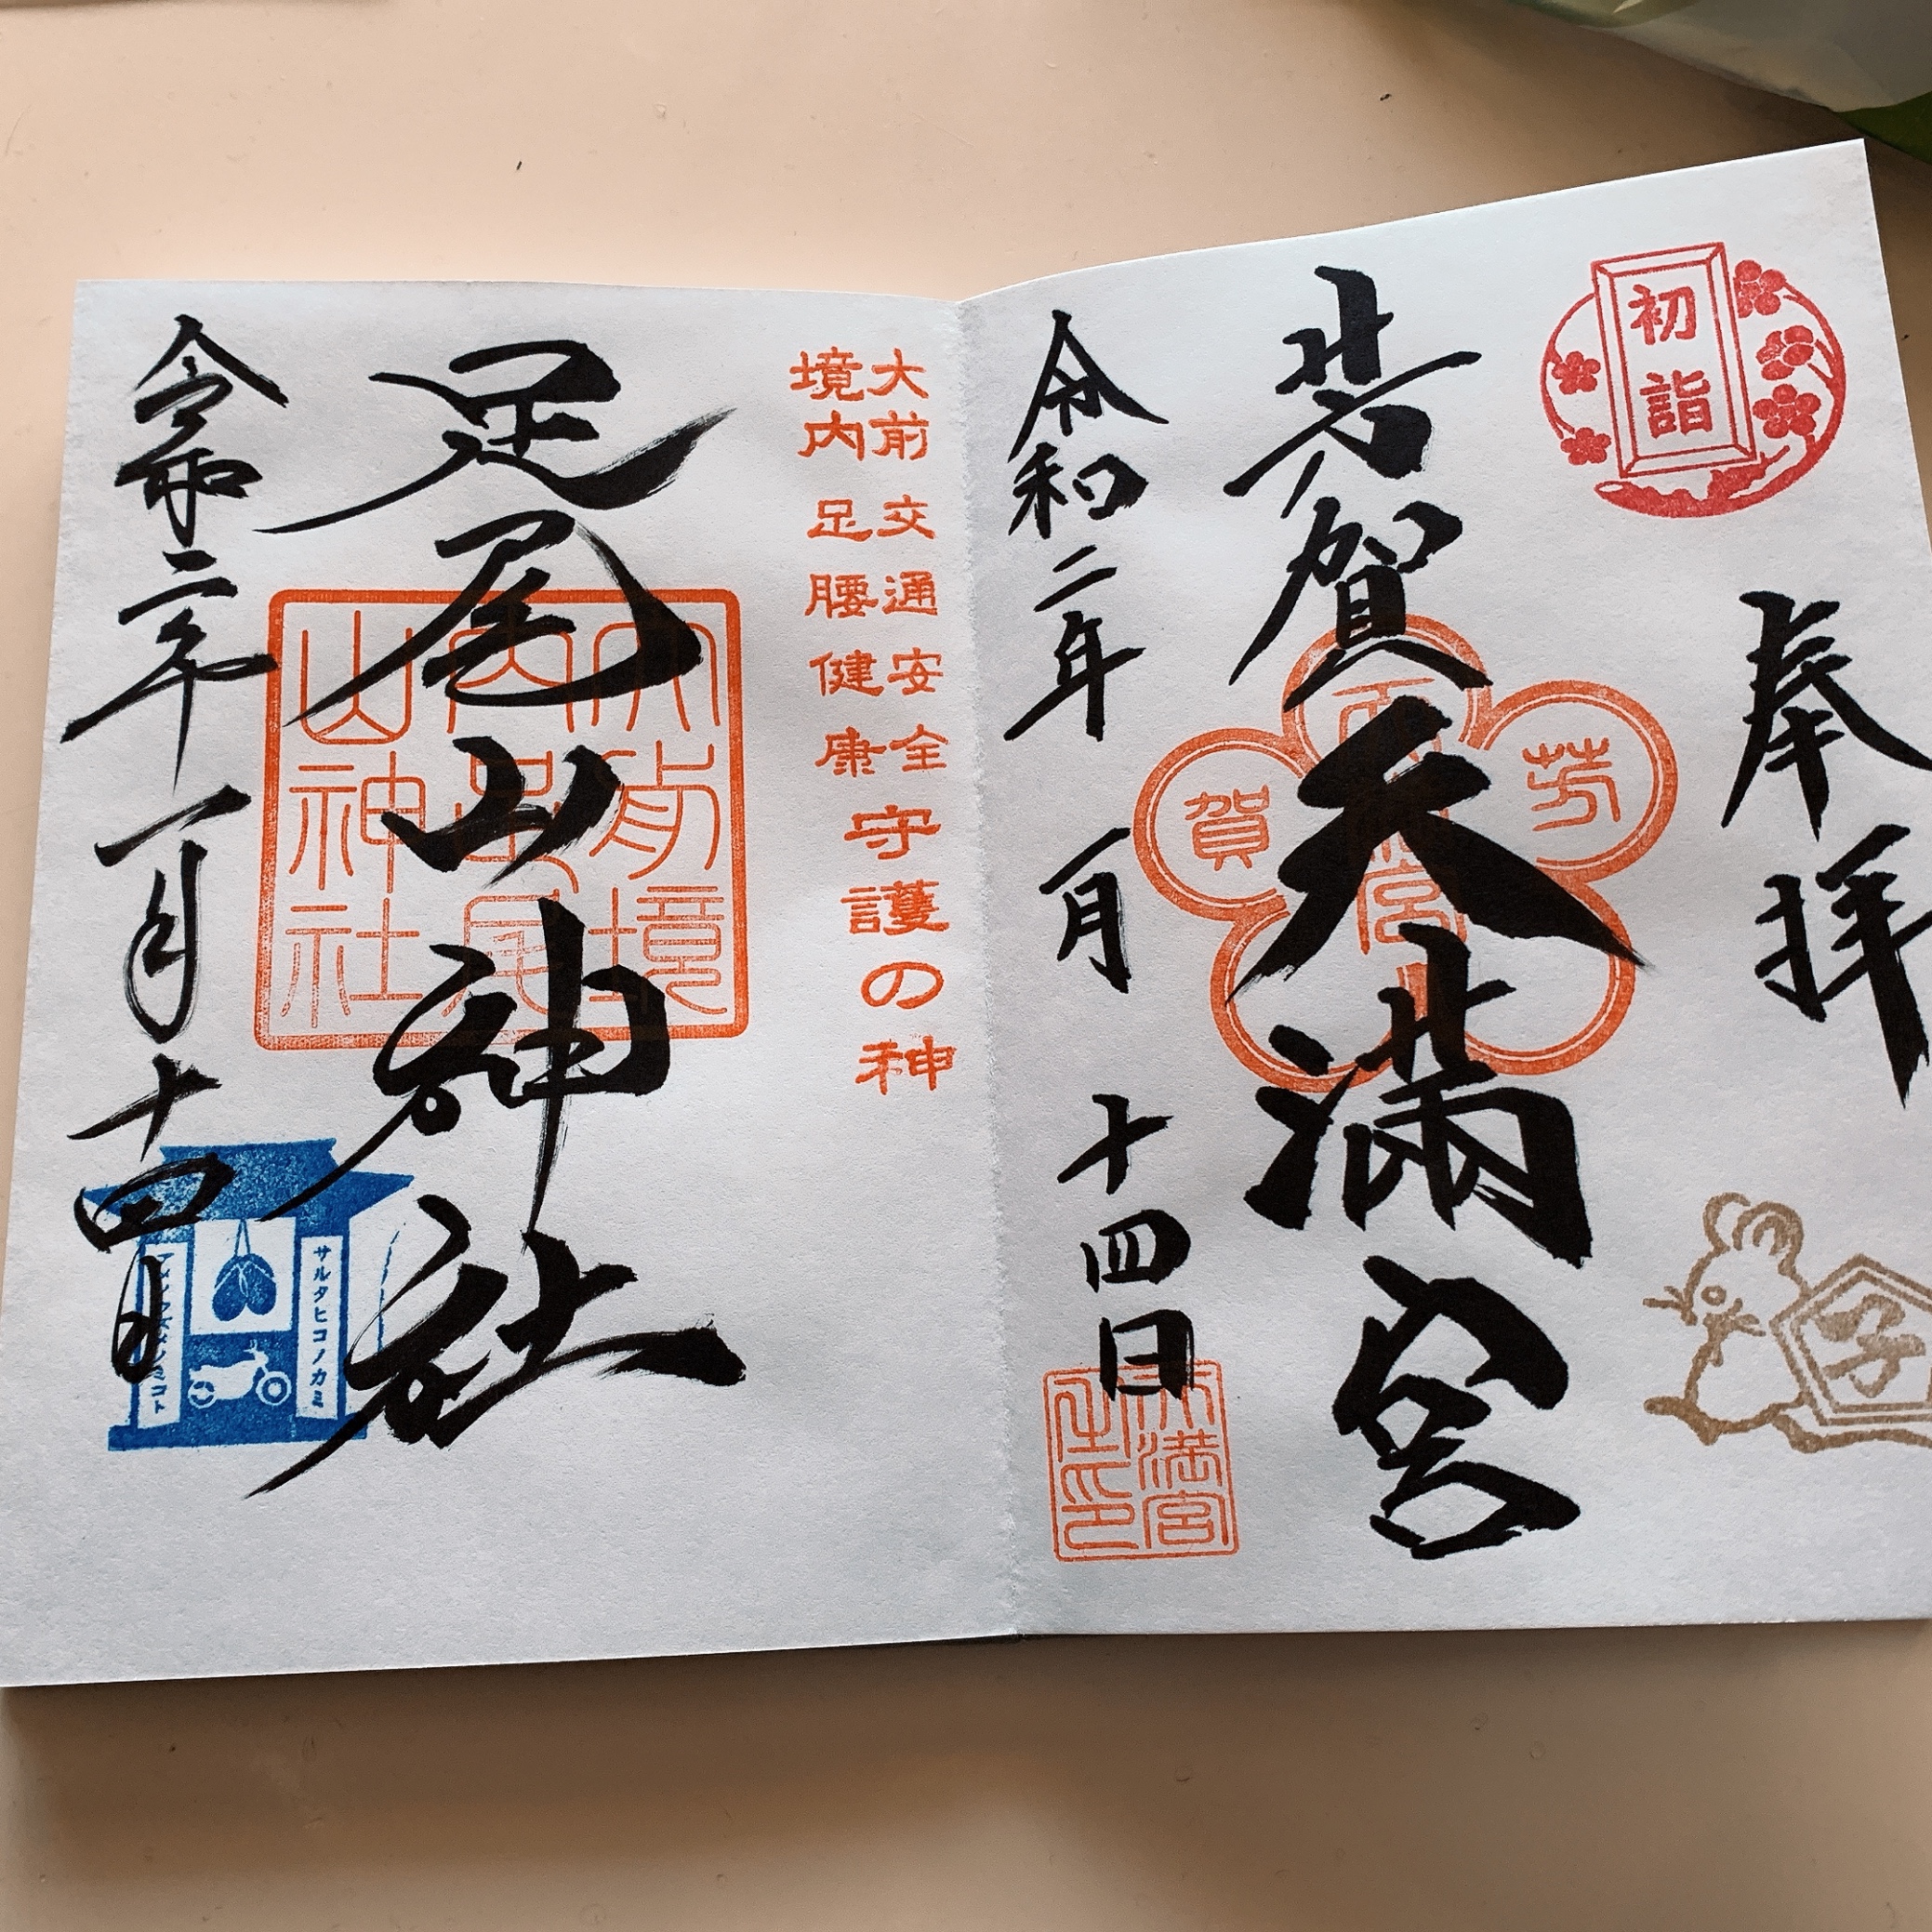 初詣
奉拝
芳賀天満宮
芳賀
天満宮
令和二年 一月 十四日
天満宮
之印
子
大前交通安全
境内足腰健康
守護の神
足尾山神社
大前境
内足尾
山神社
令和二年一月十四日
サルタヒコノカミ